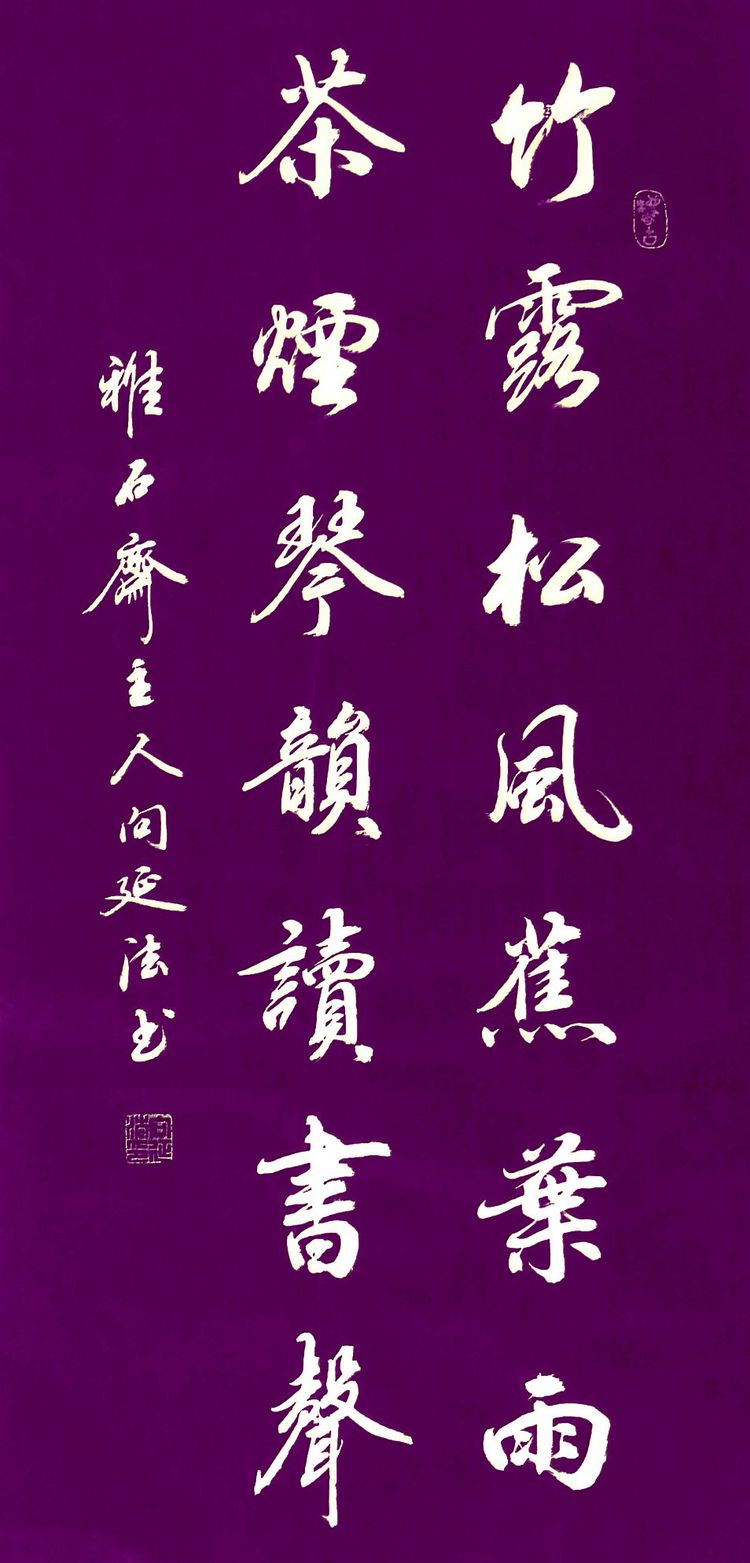 竹露松風蕉葉雨
茶煙琴韻讀書聲
雅石齋主人向延法书